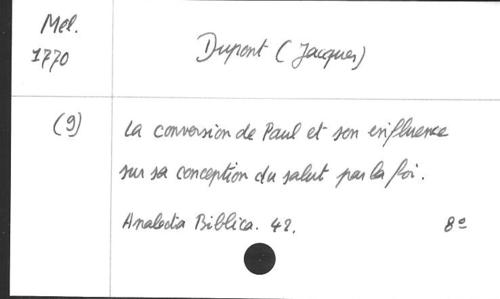 Mel.
1770
Dupont (Jacques)
(9)
La conversion de Paul et son influence
sur sa conception du salut par la foi.
Analecta Biblica. 42. 8º